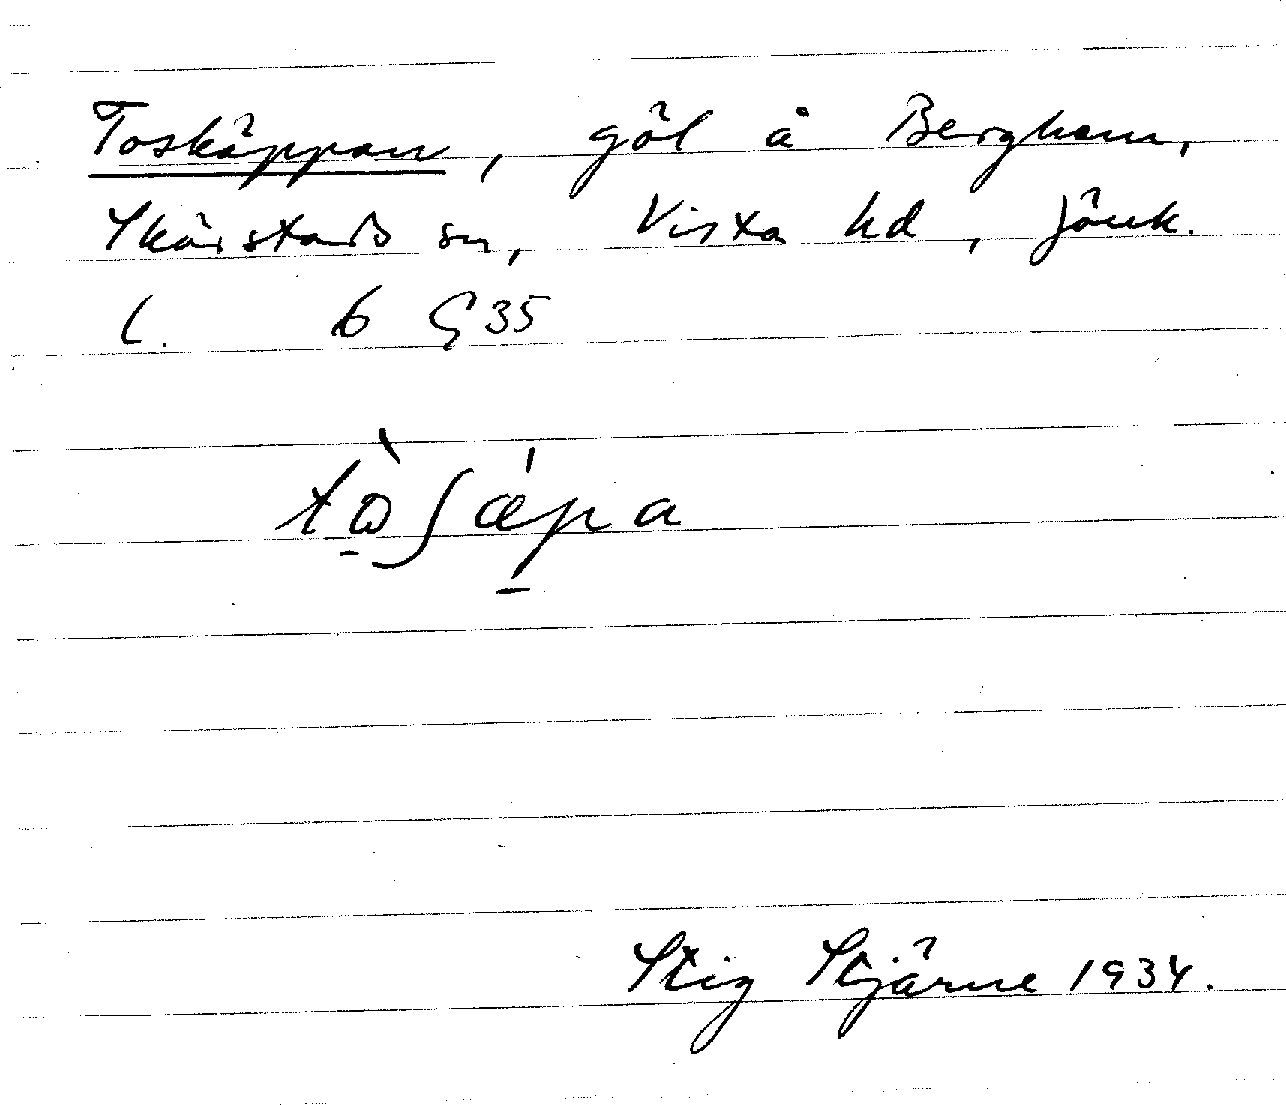 Toskäppan, göl å Bergham,
Skärstads sn, Vista hd, Jönk.
L. 6 G 35
Stig Stjärne 1934.